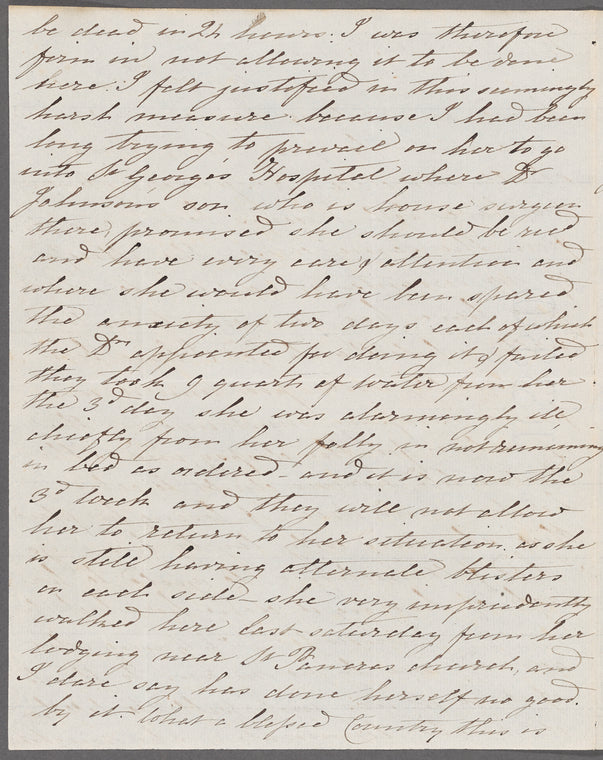 be dead in 24 hours. I was therefore
firm in not allowing it to be done
here. I felt justified in this seemingly
harsh measure because I had been
long trying to prevail on her to go
into St George's Hospital where Dr
Johnsons son who is house surgeon
there, promised she should be recd
and have every care & attention and
where she would have been spared
the anxiety of two days each of which
the Dr appointed for doing it & failed
they took 9 quarts of water from her.
the 3d day she was alarmingly ill
chiefly from her folly in not remaining
in bed as ordered – and it is now the
3d week and they will not allow
her to return to her situation as she
is still having alternate blisters
on each side she very imprudently
walked here last saturday from her
lodging near St Pancras church and
I dare say has done herself no good
by it. What a blessed Country this is